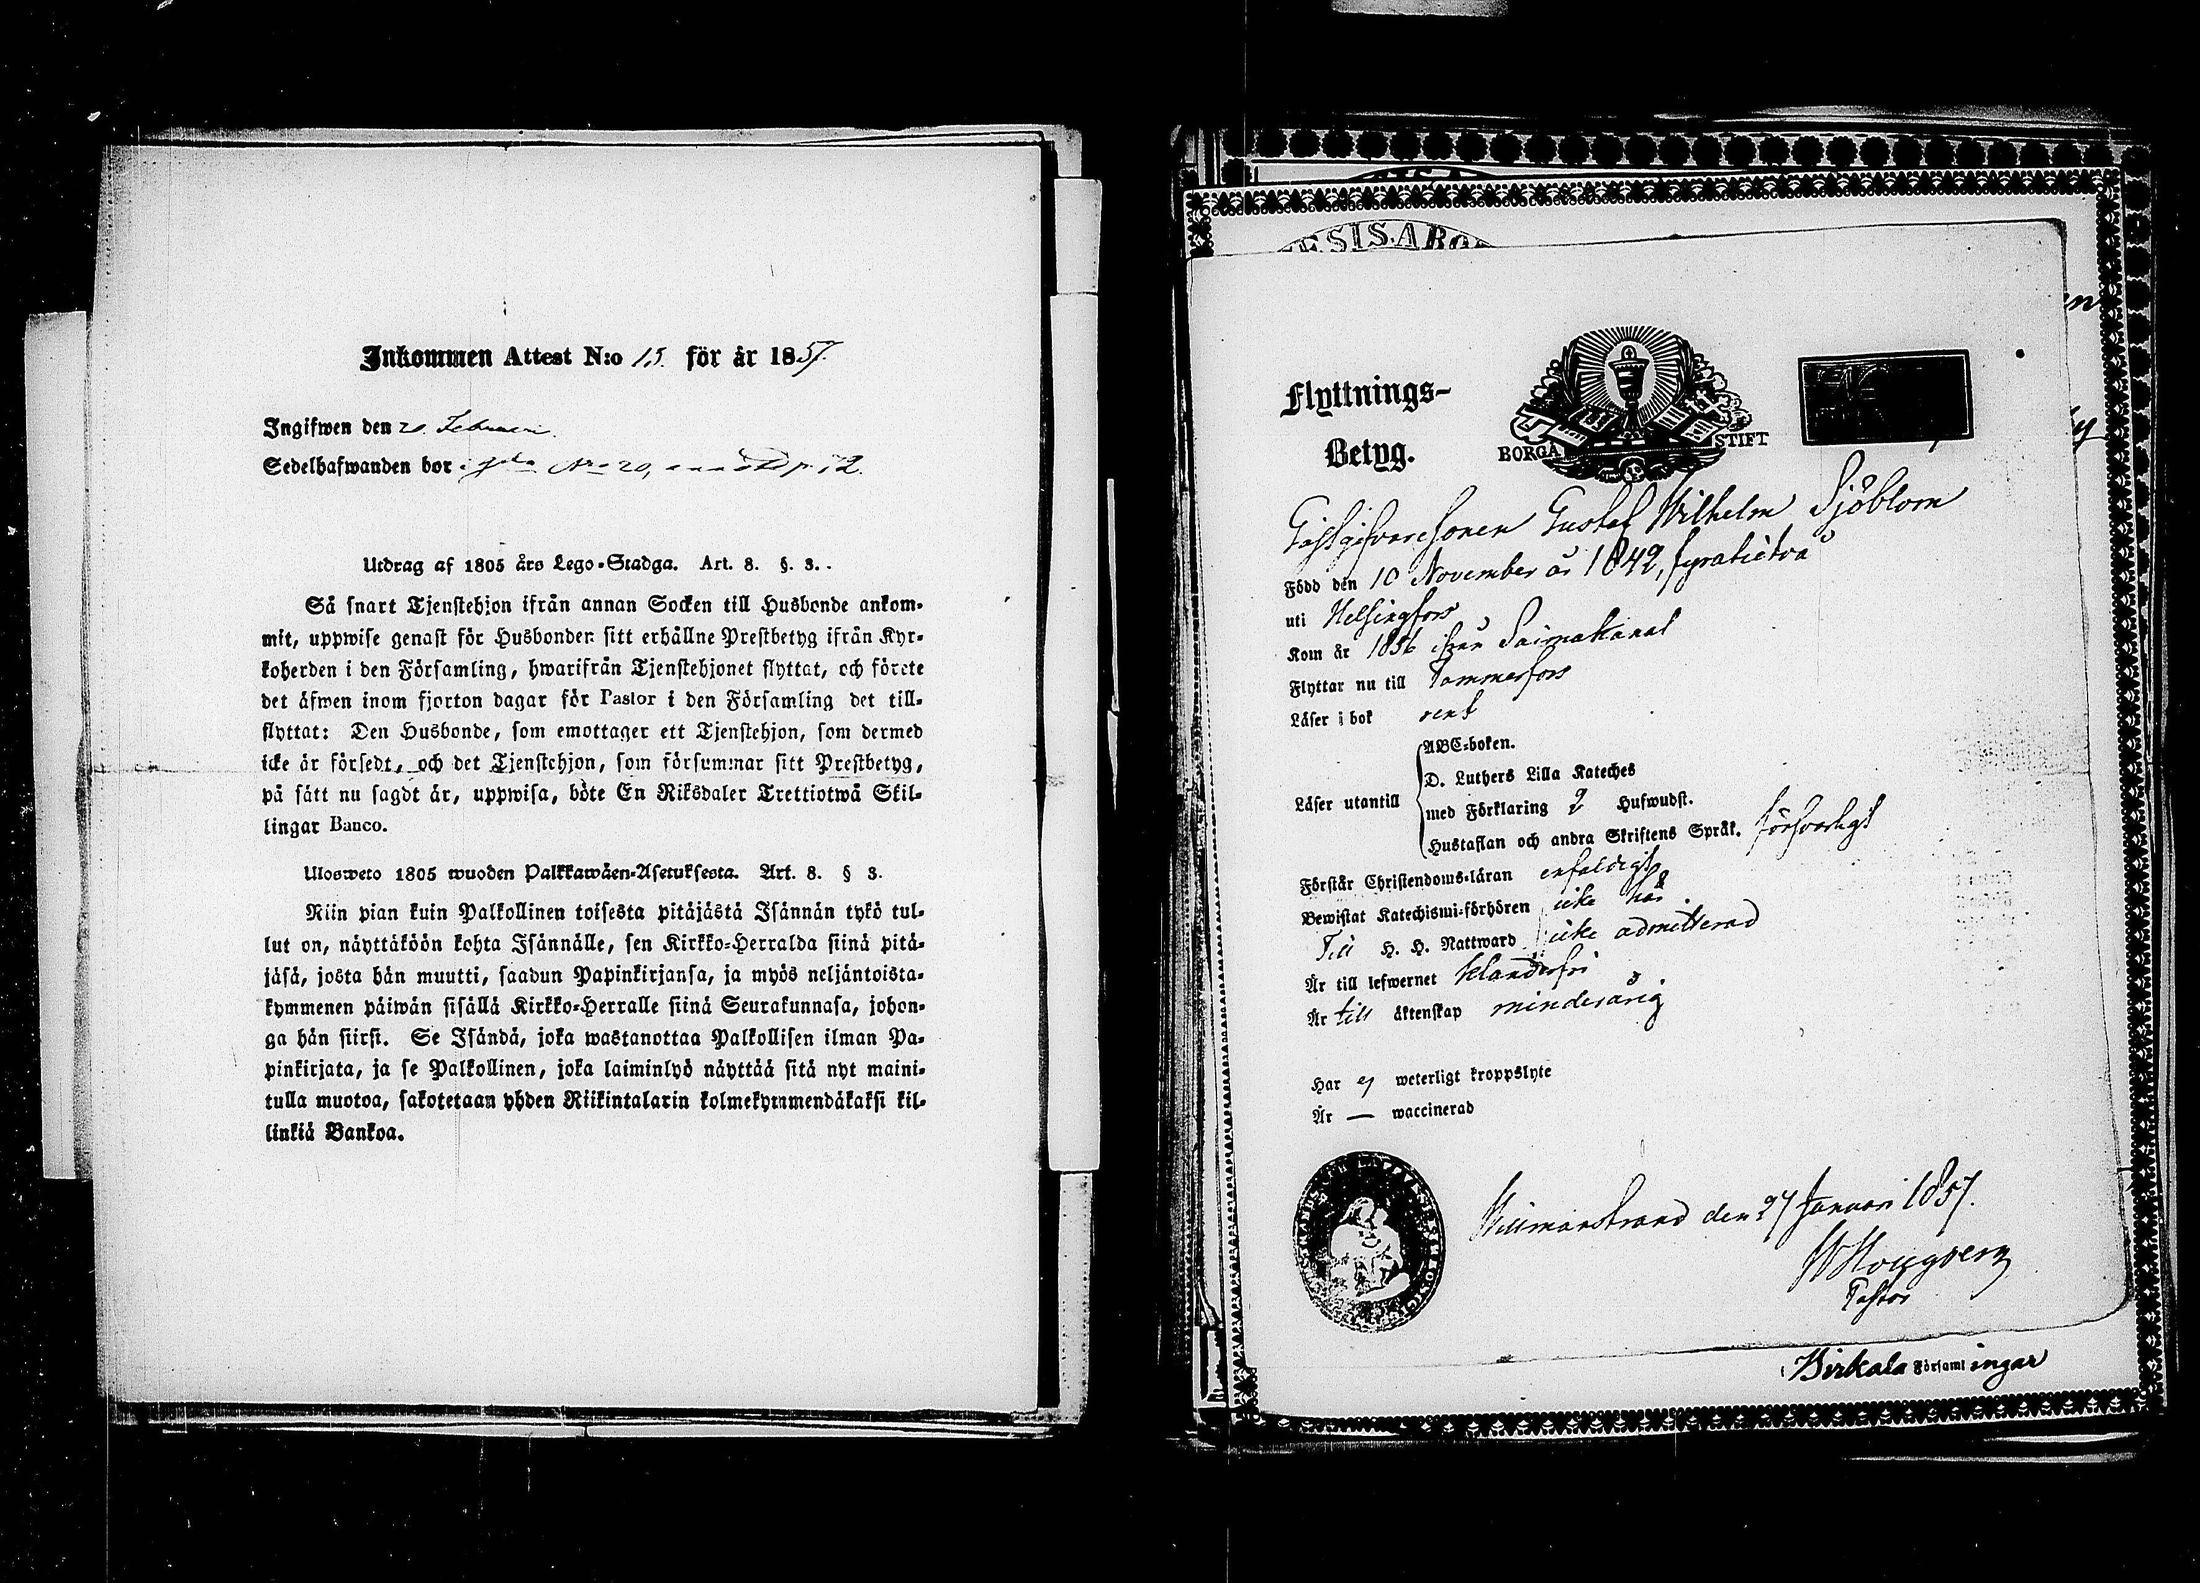 Inkommen Attest N:o 15. för år 1857.
Ingifwen den 20 Februari.
Sedelhafwanden bor i gården N:o 20,
Utdrag af 1805 års Lego-Stadga. Art. 8. §. 3.
Så snart Tjenstehjon ifrån annan Socken till Husbonde ankom-
mit, uppwise genast för Husbonden sitt erhållne Prestbetyg ifrån Kyr-
koherden i den Församling, hwarifrån Tjenstehjonet flyttat, och förete
det äfwen inom fjorton dagar för Pastor i den Församling det till-
flyttat: Den Husbonde, som emottager ett Tjenstehjon, som dermed
icke är försedt, och det Tjenstehjon, som försummar sitt Prestbetyg,
på sätt nu sagdt är, uppwisa, böte En Riksdaler Trettiotwå Skil-
lingar Banco.
Ulosweto 1805 wuoden Palkkawäen-Asetuksesta. Art. 8. § 3.
Niin pian kuin Palkollinen toisesta pitäjästä Isännän tykö tul-
lut on, näyttäköön kohta Isännälle, sen Kirkko-Herralda siinä pitä-
jäsä, josta hän muutti, saadun Papinkirjansa, ja myös neljäntoista-
kymmenen päiwän sisällä Kirkko-Herralle siinä Seurakunnasa, johon-
ga hän siirsi. Se Isändä, joka wastanottaa Palkollisen ilman Pa-
pinkirjata, ja se Palkollinen, joka laiminlyö näyttää sitä nyt maini-
tulla muotoa, sakotetaan yhden Riikintalarin kolmekymmendäkaksi kil-
linkiä Bankoa.
Flyttnings-
Betyg.
BORGÅ STIFT
Gästgifvaresonen Gustaf Wilhelm Sjöblom
Född den 10 November år 1842, fyratietvå
uti Helsingfors
Kom år 1856 ifrån Saimakanal
Flyttar nu till Tammerfors
Läser i bok rent
Läser utantill
ABC-boken.
D. Luthers Lilla Kateches
med Förklaring 2 Hufwudst.
Hustaflan och andra Skriftens Språk. försvarligt
Förstår Christendoms-läran enfaldigt
Bewistat Katechismi-förhören icke här
Till H. H. Nattward icke admitterad
Är till lefwernet klanderfri
Är till äktenskap minderårig
Har ej weterligt kroppslyte
Är — waccinerad
Willmanstrand den 27 Januari 1857.
Pastor
Birkala Församlingar